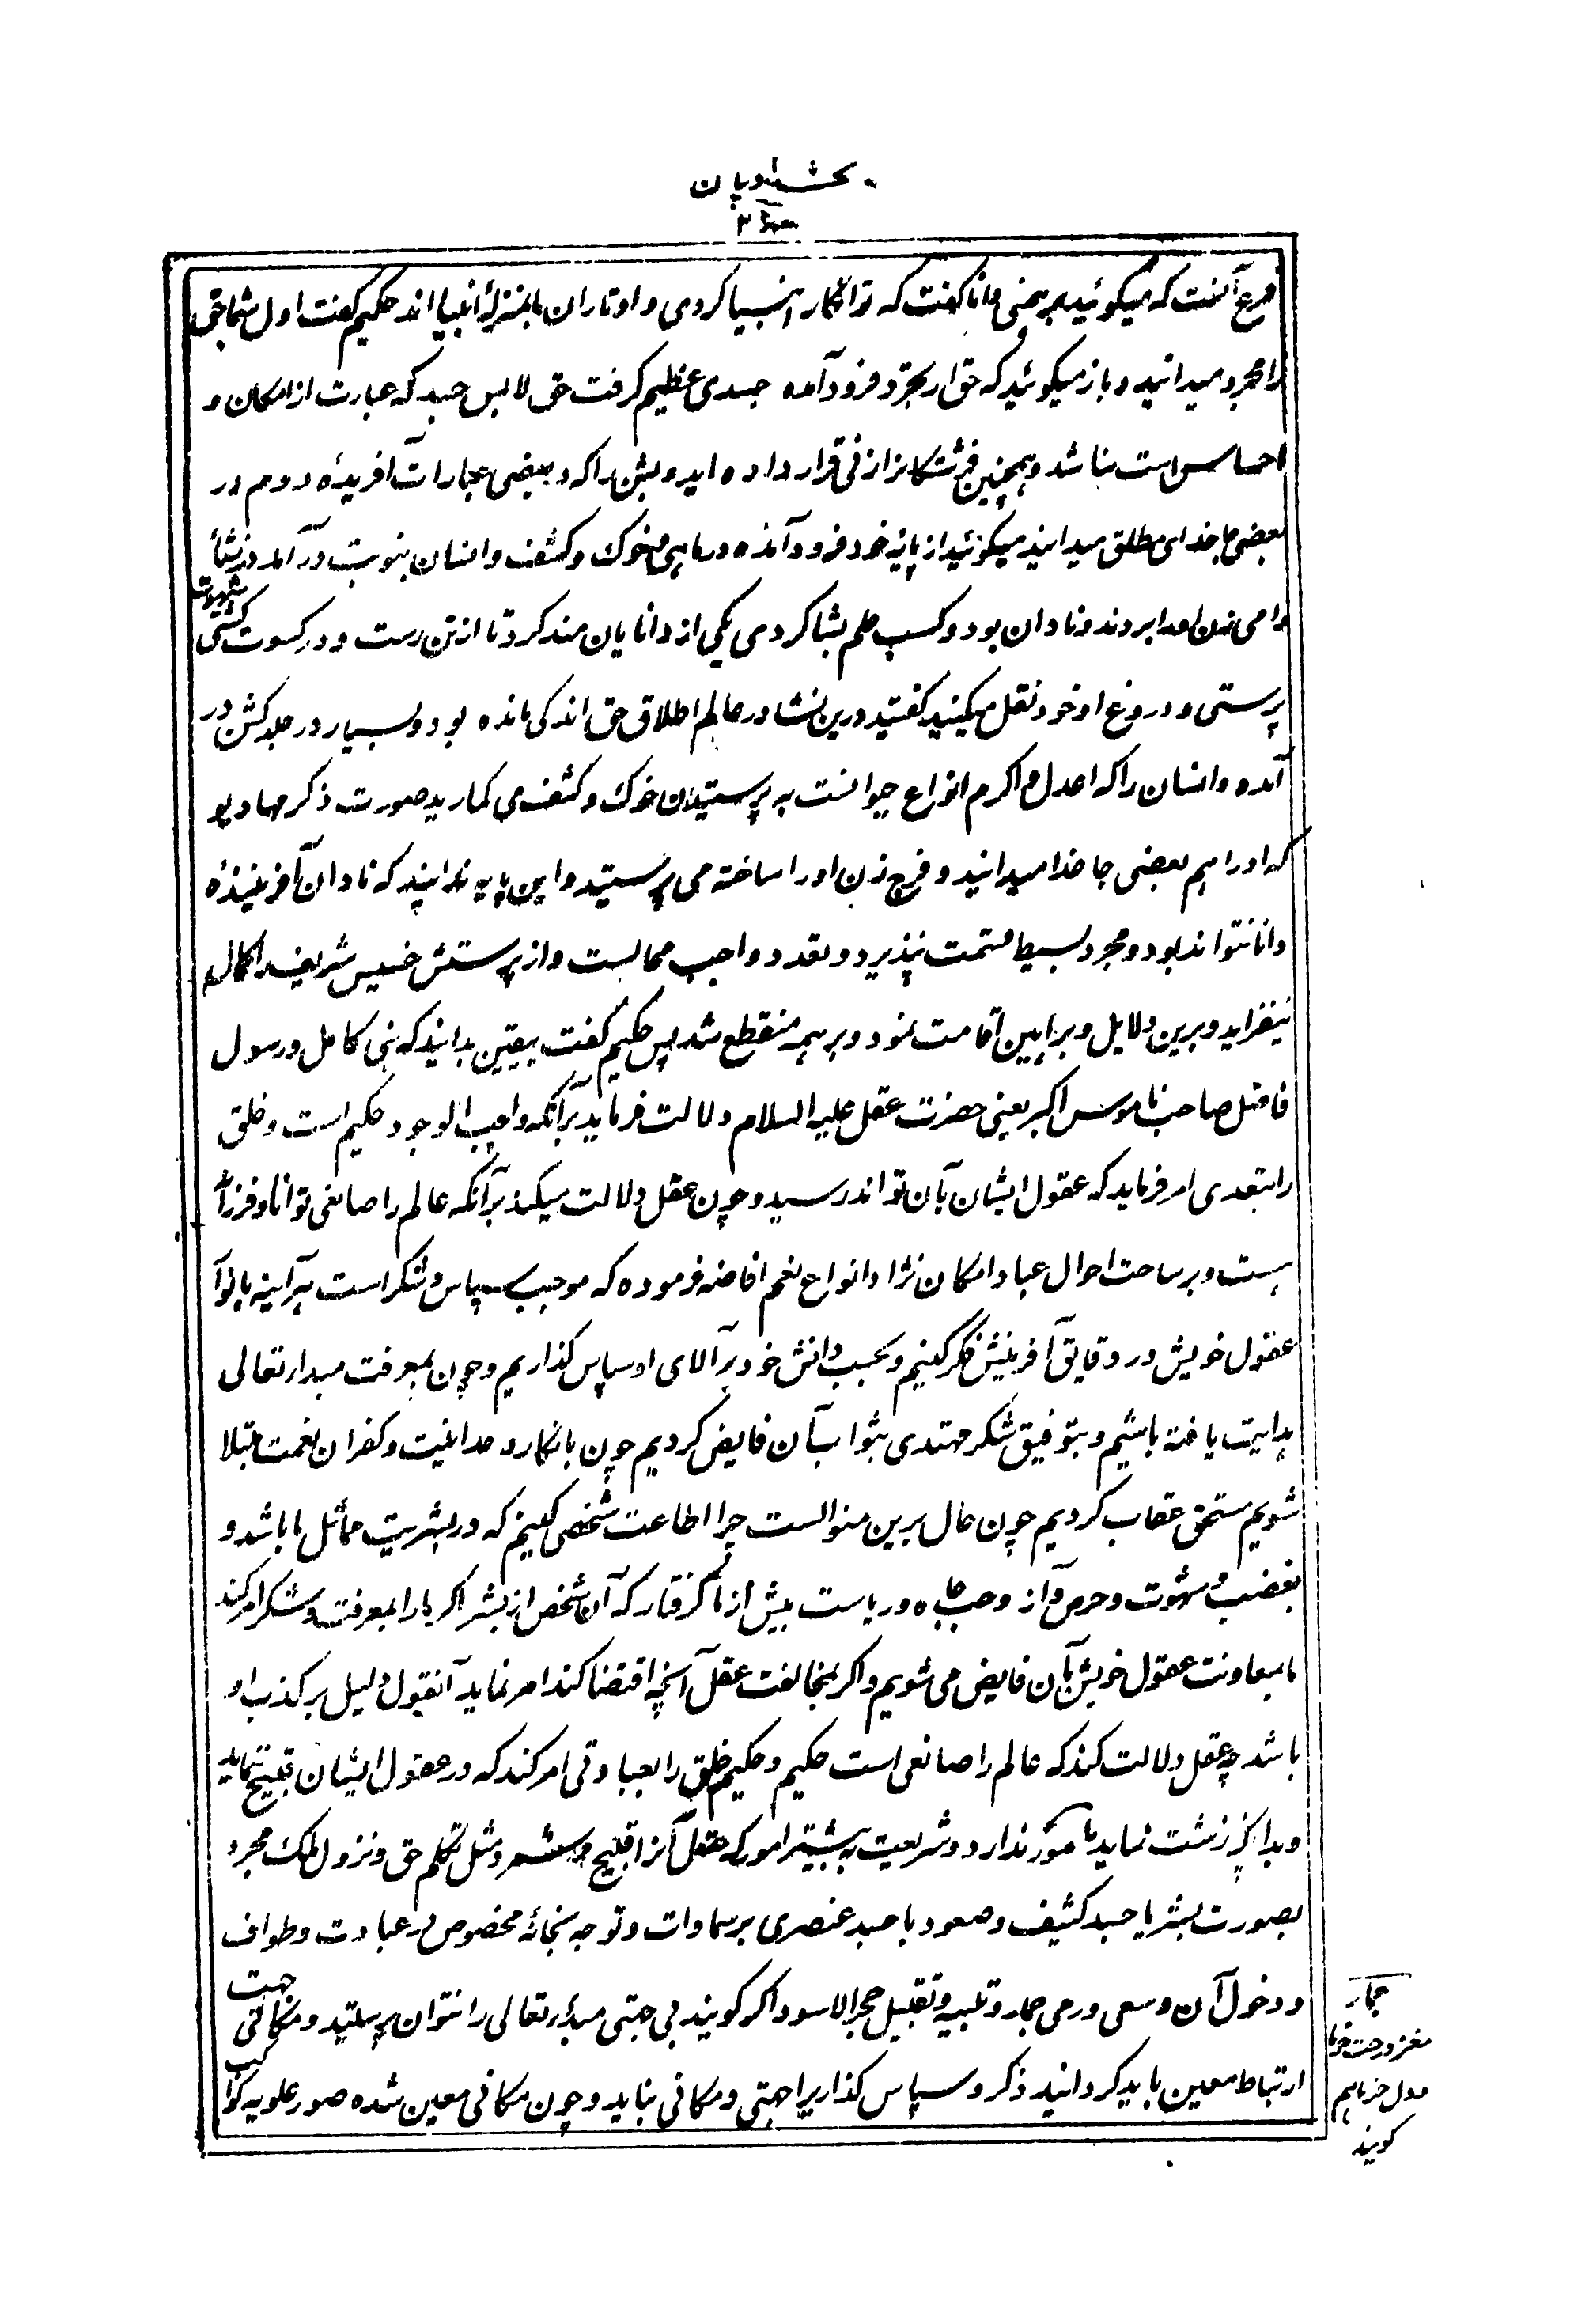 بحث ادیان
فرع آنست که میگوئید برهمنی دانا گفت که تو انکار انبیا کردی و اوتاران ما بمنزلهٔ انبیا اند حکیم گفت اول شما حق
را مجرد میدانید و باز میگوئید که حق از تجرّد فرود آمده جسدی عظیم گرفت حق لابس جسد که عبارت از امکان و
احساس است نباشد و همچنین فرشتگانرا زنی قرار داده اید و بشن را که در بعضی عبارات آفریدهٔ دوم و در
بعضی جا خدای مطلق میدانید میگوئید از پایهٔ خود فرود آمده در ماهی و خوک و کشف و انسان بنوبت درآمد در نشأ
رامی زن او را بردند و نادان بود و کسب علم بشاگردی یکی از دانایان هند کرد تا از تن رست و در کسوت کشنی شهوت
پرستی و دروغ او خود نقل میکنید گفتید درین نشأ در عالم اطلاق حق اندکی مانده بود و بسیار در جسد کشن در
آمده و انسان را که اعدل و اکرم انواع حیوانست به پرستیدن خوک و کشف می گمارید صورت ذکر مهادیو
که او را هم بعضی جا خدا میدانید و فرج زن او را ساخته می پرستید و این پایه ندانید که نادان آفرینندهٔ
دانا نتواند بود و مجرد بسیط قسمت نپذیرد و تعدد واجب محالست و از پرستش خسیس شریف را کمال
نیفزاید و برین دلایل و براهین اقامت نمود و برهمه منقطع شد پس حکیم گفت بیقین بدانید که نبی کامل و رسول
فاضل صاحب ناموس اکبر یعنی حضرت عقل علیه السلام دلالت فرماید برآنکه واجب الوجود حکیم است و خلق
را بتعبدی امر فرماید که عقول ایشان بآن تواند رسید و چون عقل دلالت میکند برآنکه عالم را صانعی توانا و فرزانه
هست و بر ساحت احوال عباد امکان نژاد انواع نعم افاضه فرموده که موجب سپاس و شکر است هرآینه باید با
عقول خویش در دقایق آفرینش فکر کنیم و بحسب دانش خود برآلای او سپاس گذاریم و چون بمعرفت مبدأ تعالی
هدایت یافته باشیم و بتوفیق شکر مهتدی بثواب آن فایض گردیم چون بانکار وحدانیت و کفران نعمت مبتلا
شویم مستحق عقاب گردیم چون حال برین منوالست چرا اطاعت شخصی کنیم که در بشریت مماثل ما باشد و
بغضب و شهوت و حرص و آز و حب جاه و ریاست بیش از ما گرفتار که آن شخص از بشر اگر ما را بمعرفت و شکر امر کند
ما بمعاونت عقول خویش بآن فایض می شویم و اگر بمخالفت عقل آنچه اقتضا کند امر نماید آنقول دلیل بر کذب او
باشد چه عقل دلالت کند که عالم را صانعی است حکیم و حکیم خلق را بعبادتی امر کند که در عقول ایشان قبیح ننماید
و بدانچه زشت نماید مأمور ندارد و شریعت به بیشتر امور که عقل آنرا قبیح شمرد مثل تکلم حق و نزول ملک مجرد
بصورت بشر یا جسد کثیف و صعود با جسد عنصری بر سماوات و توجه بخانهٔ مخصوص در عبادت و طواف
و دخول آن و سعی و رمی جمار و تلبیه و تقبیل حجر الاسود اگر گویند بی جهتی مبدأ تعالی را نتوان پرستید و مکانی جهت
ارتباط معین باید گردانید ذکر و سپاس گذار را جهتی و مکانی نباید و چون مکانی معین شده صور علویه کواکب
جمار
مغز درخت خرما
گویند